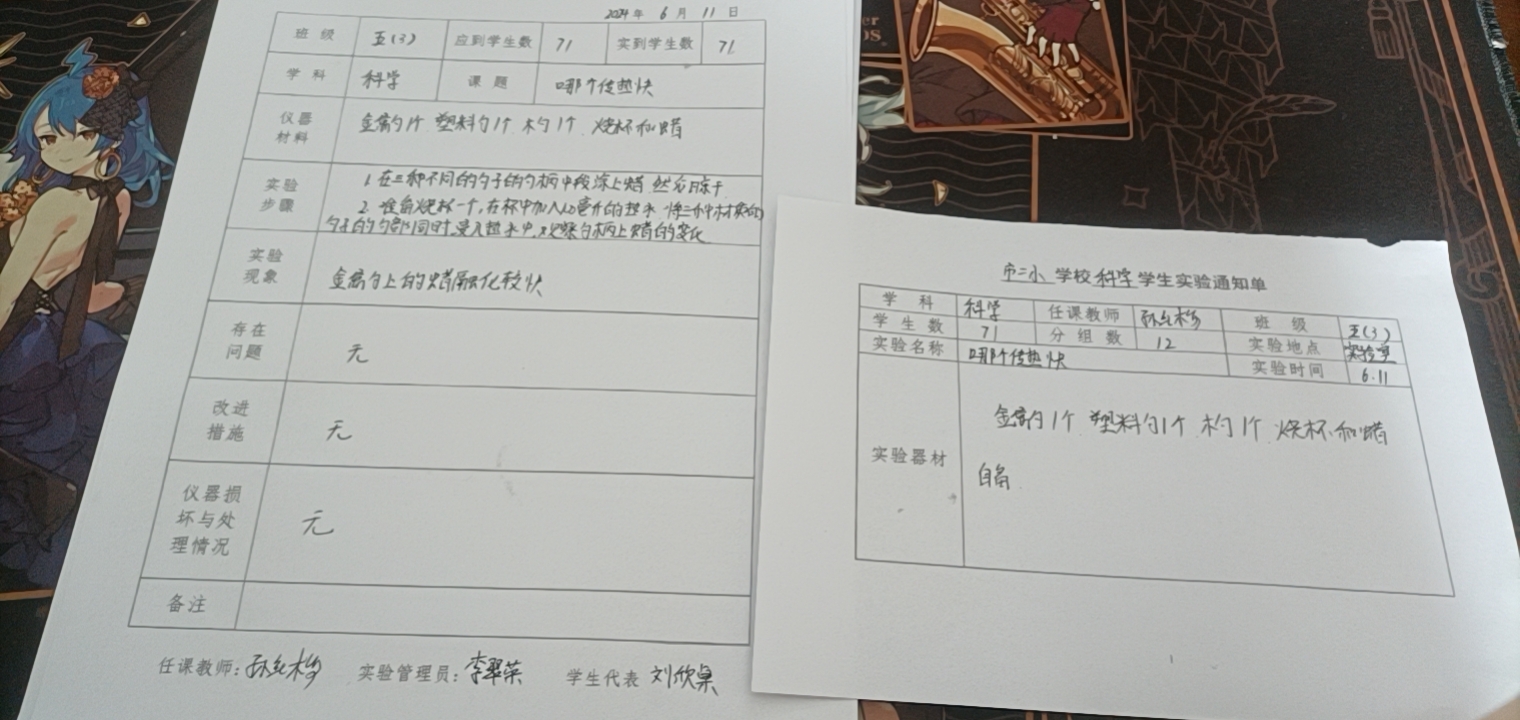 2024年 6月 11日
班级 五(3) 应到学生数 71 实到学生数 71
学科 科学 课题 哪个传热快
仪器材料 金属勺1个 塑料勺1个 木勺1个 烧杯和蜡
实验步骤 1. 在三种不同的勺子的勺柄中段涂上蜡 然后晾干
2. 准备烧杯一个,在杯中加入 毫升的热水 将三种材质的
勺子的勺部同时浸入热水中,观察勺柄上蜡的变化
实验现象 金属勺上的蜡融化较快
存在问题 无
改进措施 无
仪器损坏与处理情况 无
备注
任课教师: 实验管理员:李翠荣 学生代表 刘欣
市二小 学校科学学生实验通知单
学科 科学 任课教师 班级 五(3)
学生数 71 分组数 12 实验地点 实验室
实验名称 哪个传热快 实验时间 6.11
实验器材 金属勺1个 塑料勺1个 木勺1个 烧杯和蜡
自备